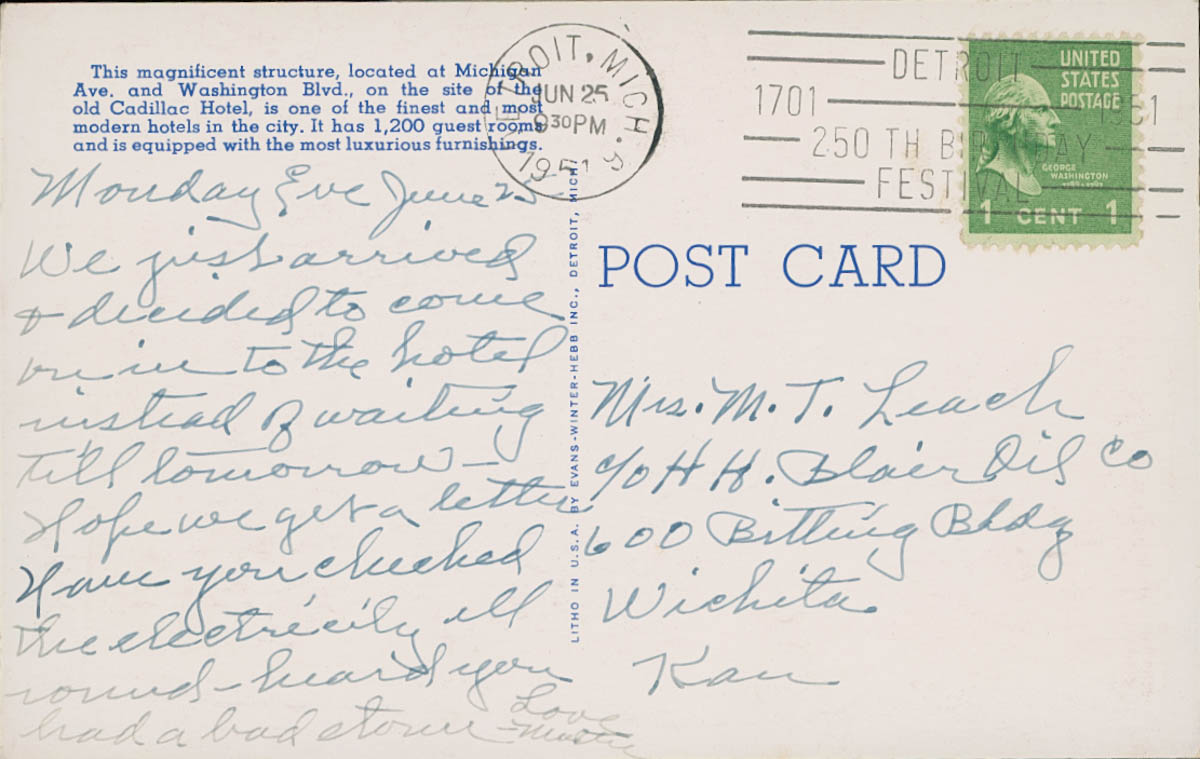 This magnificent structure, located at Michigan
Ave. and Washington Blvd., on the site of the
old Cadillac Hotel, is one of the finest and most
modern hotels in the city. It has 1,200 guest rooms
and is equipped with the most luxurious furnishings.
DETROIT, MICH. 6
JUN 25
930 PM
1951
DETROIT
1701 1951
250 TH BIRTHDAY
FESTIVAL
UNITED
STATES
POSTAGE
GEORGE
WASHINGTON
1 CENT 1
Monday Eve June 25
We just arrived
& decided to come
on in to the hotel
instead of waiting
till tomorrow –
Hope we get a letter
Have you checked
the electricity all
round – heard you
had a bad storm
Love
LITHO IN U.S.A. BY EVANS-WINTER-HEBB INC., DETROIT, MICH
POST CARD
Mrs. M. T. Leach
c/o H H. Blair Oil Co
600 Bitting Bldg
Wichita
Kan